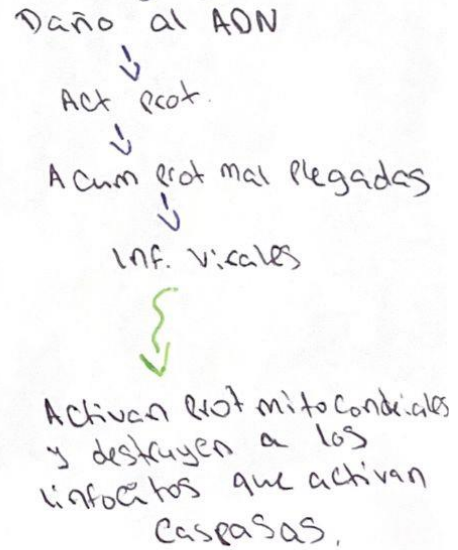 Daño al ADN
Act prot.
Acum prot mal plegadas
Inf. virales
Activan prot mitocondriales
y destruyen a los
linfocitos que activan
caspasas.